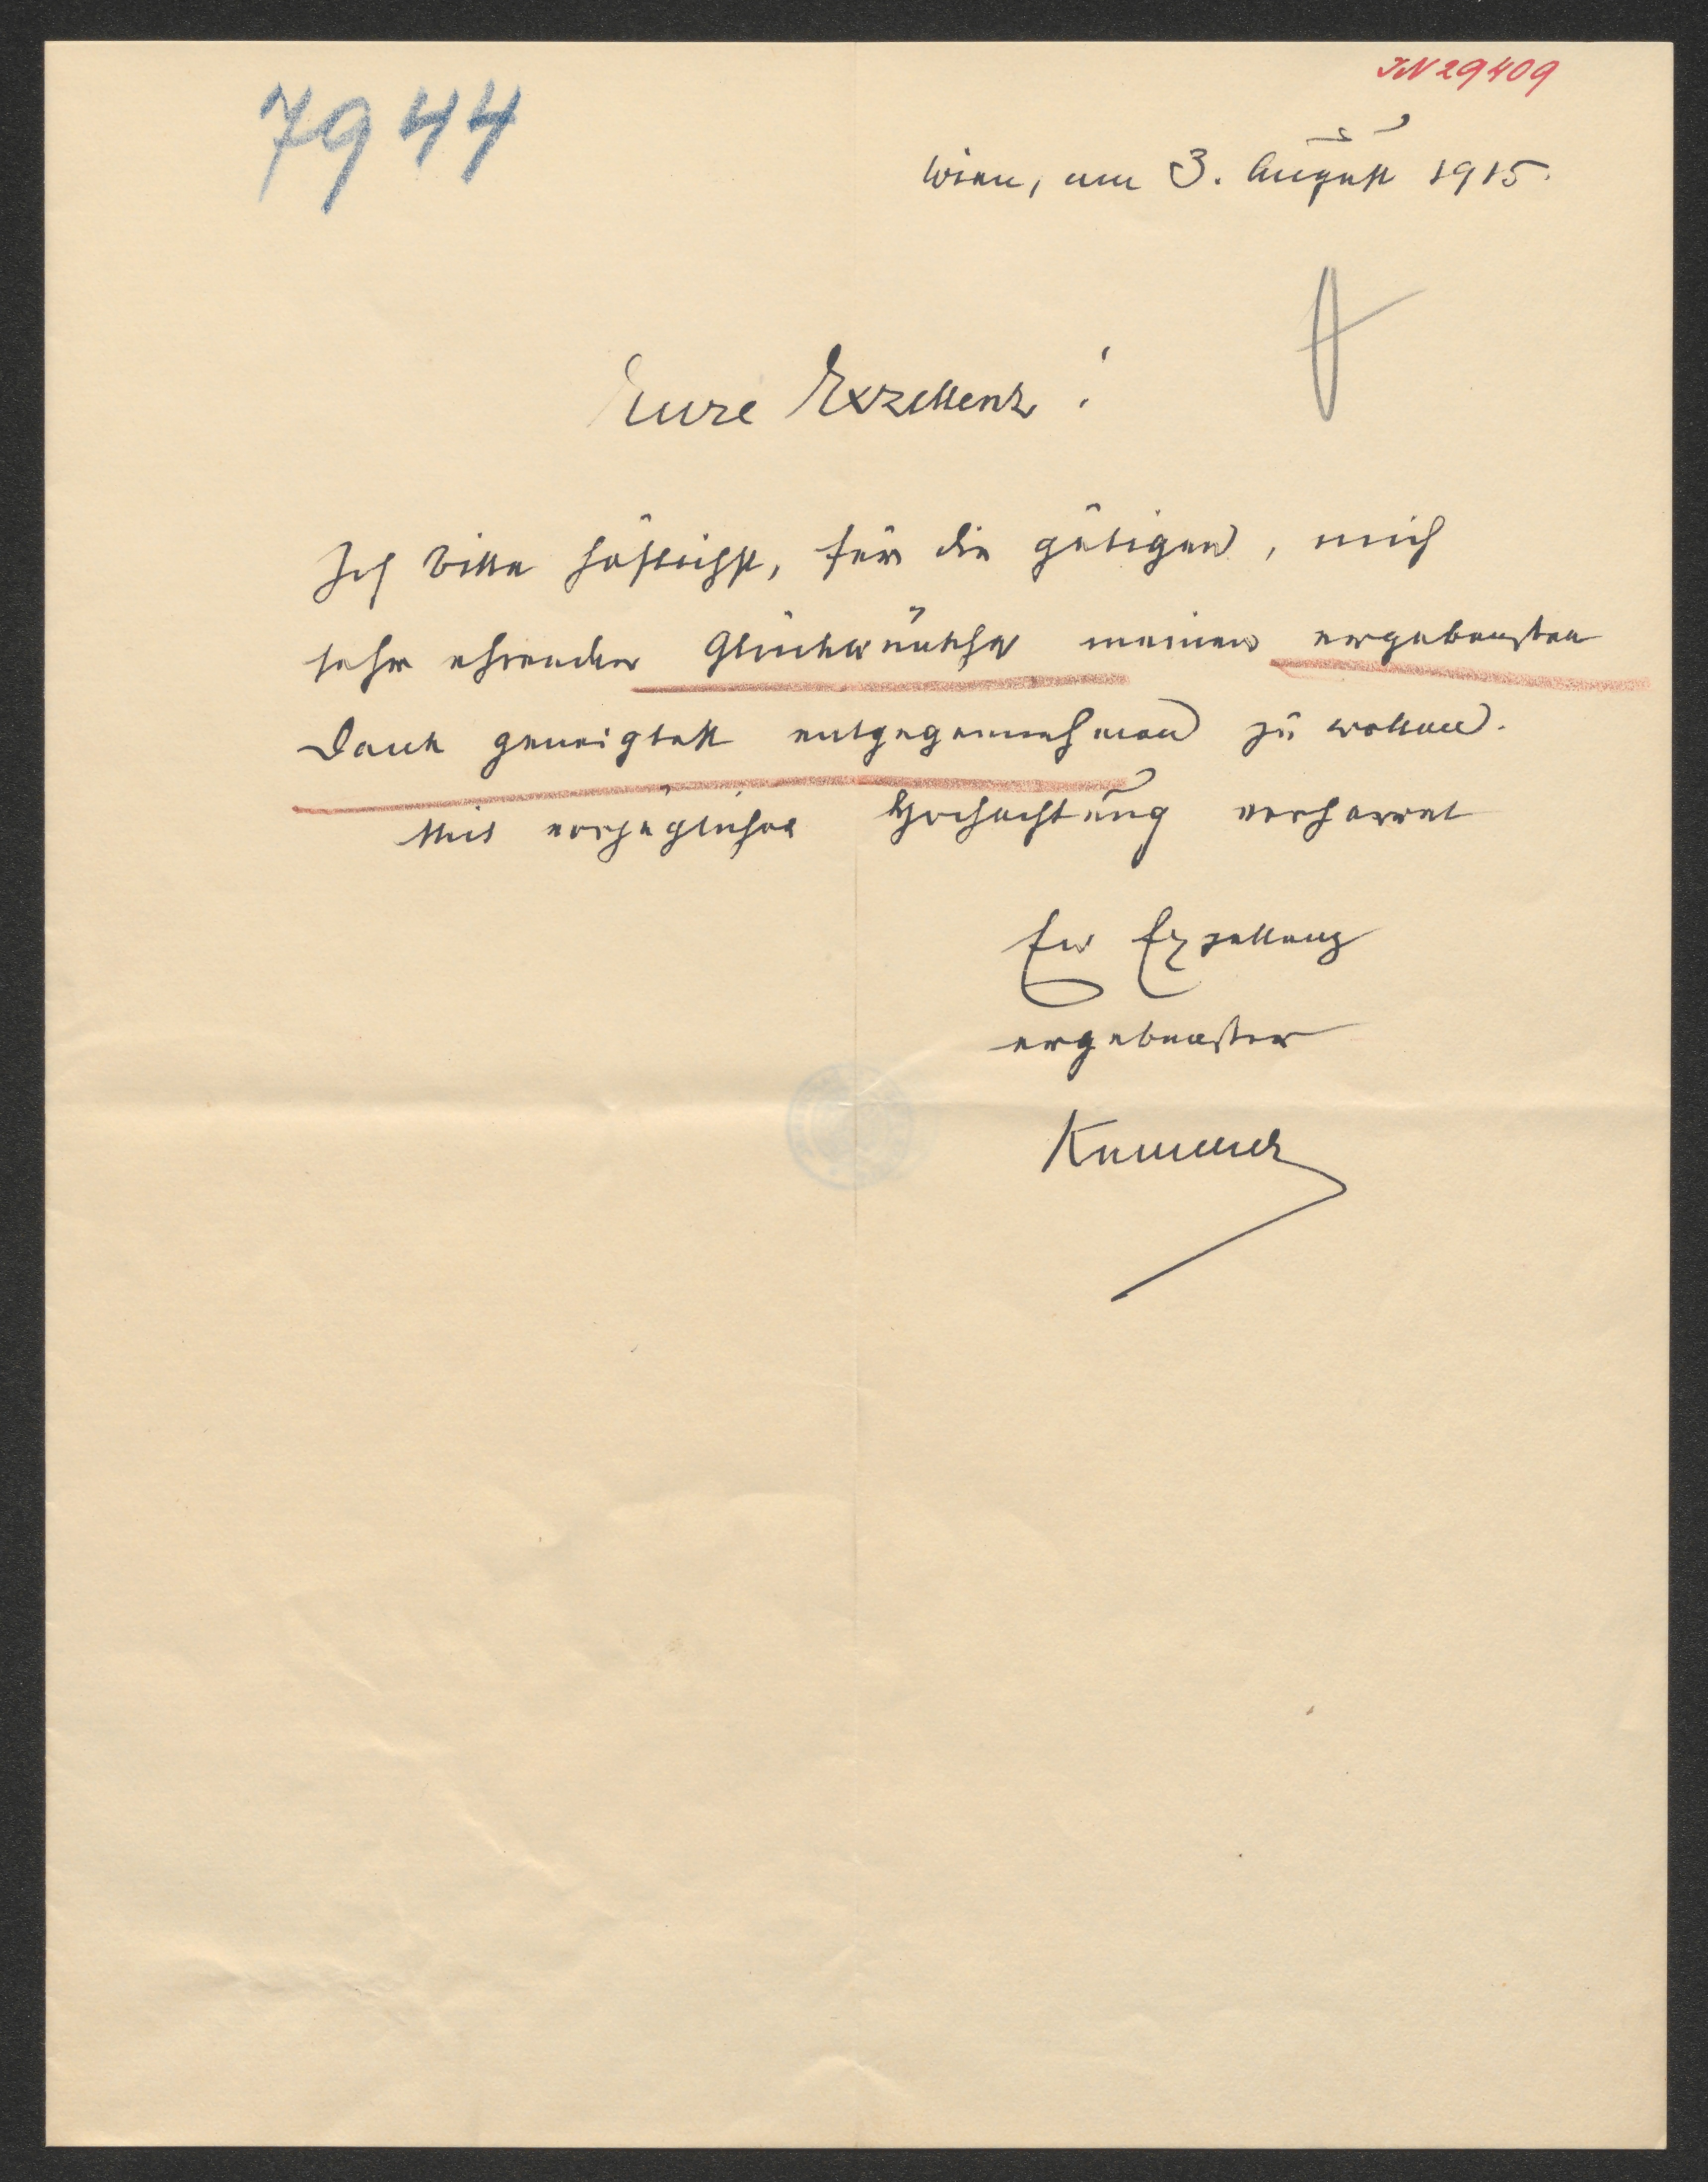 JN 29409
7944
Wien, am 3. August 1915.
Eure Exzellenz!
Ich bitte höflichst, für die gütigen, mich
sehr ehrenden Glückwünsche meinen ergebensten
Dank geneigtest entgegennehmen zu wollen.
Mit vorzüglicher Hochachtung verharret
Ew Exzellenz
ergebenster